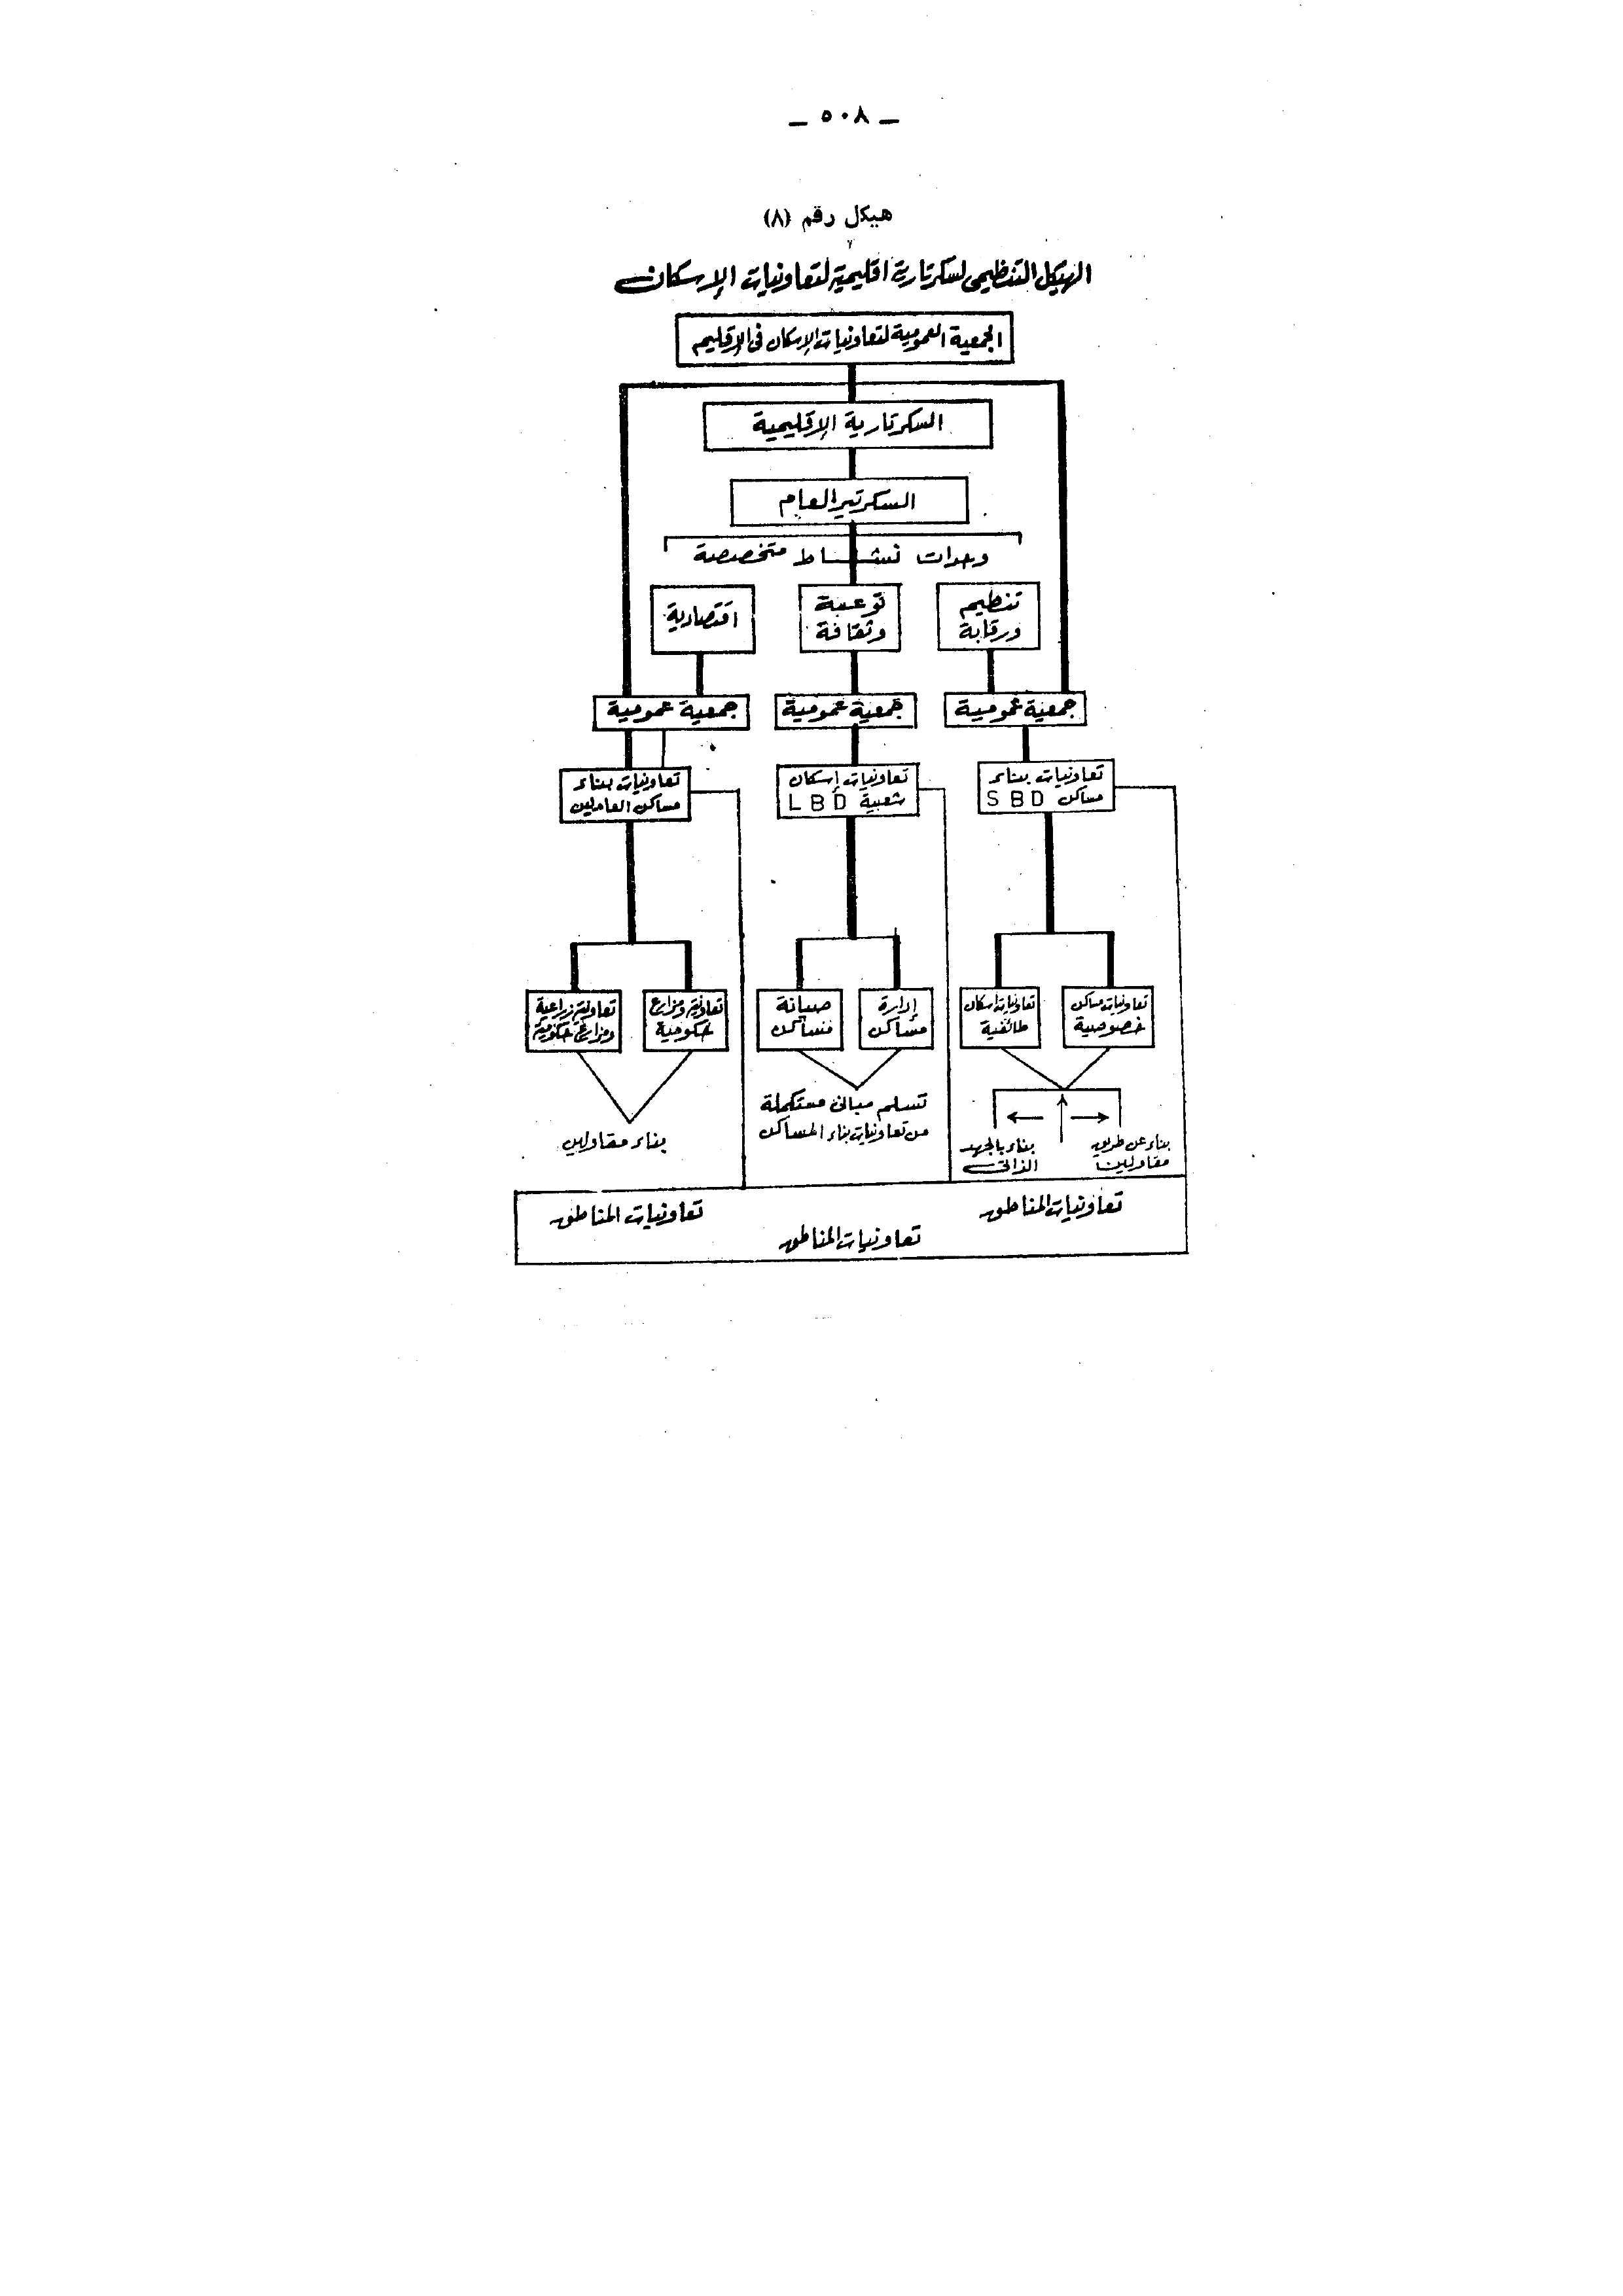 — ٥٠٨ —
هيكل رقم (٨)
الهيكل التنظيمى لسكرتارية اقليمية لتعاونيات الإسكان
الجمعية العمومية لتعاونيات الإسكان فى الإقليم
السكرتارية الإقليمية
السكرتير العام
وحدات نشاط متخصصة
تنظيم
ورقابة
توعية
وثقافة
اقتصادية
جمعية عمومية
جمعية عمومية
جمعية عمومية
تعاونيات بناء
مساكن SBD
تعاونيات إسكان
شعبية LBD
تعاونيات بناء
مساكن العاملين
تعاونيات مساكن
خصوصية
تعاونيات اسكان
طائفية
إدارة
مساكن
صيانة
مساكن
تعاونية ومزارع
حكومية
تعاونية زراعية
ومزارع حكومية
بناء عن طريق
مقاولين
بناء بالجهد
الذاتى
تتسلم مبانى مستكملة
من تعاونيات بناء المساكن
بناء مقاولين
تعاونيات المناطق
تعاونيات المناطق
تعاونيات المناطق